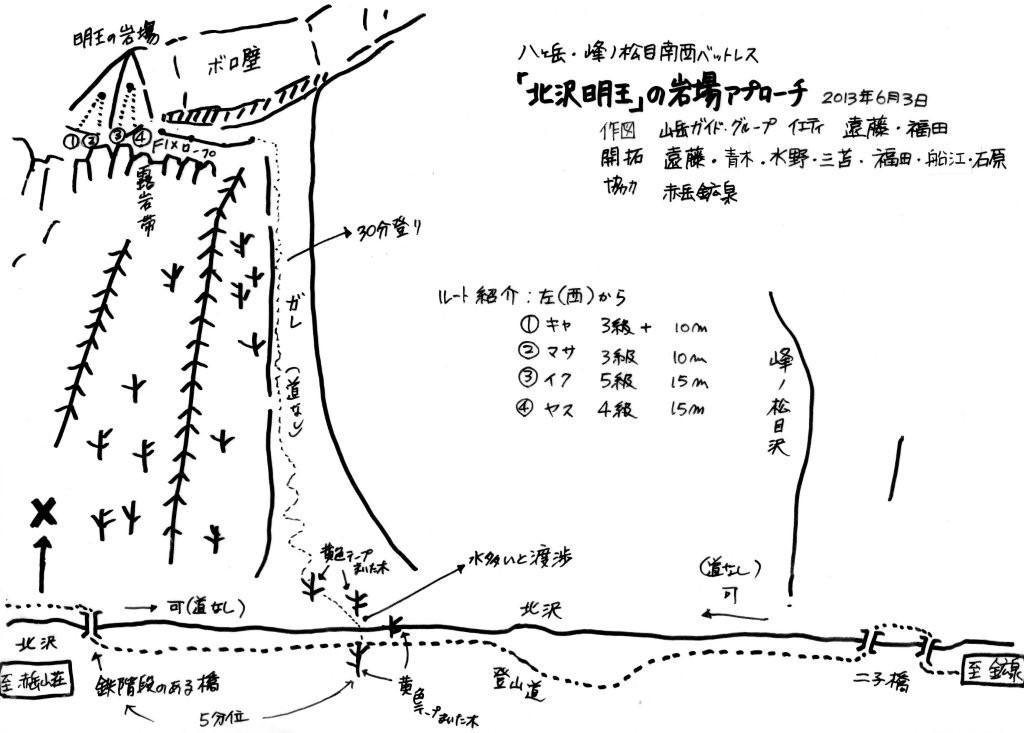 八ヶ岳・峰ノ松目南西ベットレス
「北沢明王」の岩場アプローチ 2013年6月3日
作図 山岳ガイド・グループ イエティ 遠藤・福田
開拓 遠藤・青木・水野・三苫・福田・船江・石原
協力 赤岳鉱泉
明王の岩場
ボロ壁
① ② ③ ④ FIXロープ
露岩帯
30分登り
ガレ (道なし)
ルート紹介:左(西)から
① キャ 3級+ 10m
② マサ 3級 10m
③ イク 5級 15m
④ ヤス 4級 15m
峰ノ松目沢
X
黄色テープ
まいた木
水多いと渡渉
(道なし)
可
→ 可(道なし)
北沢
北沢
至 赤岳山荘
鉄階段のある橋
5分位
黄色
テープまいた木
登山道
二子橋
至 鉱泉